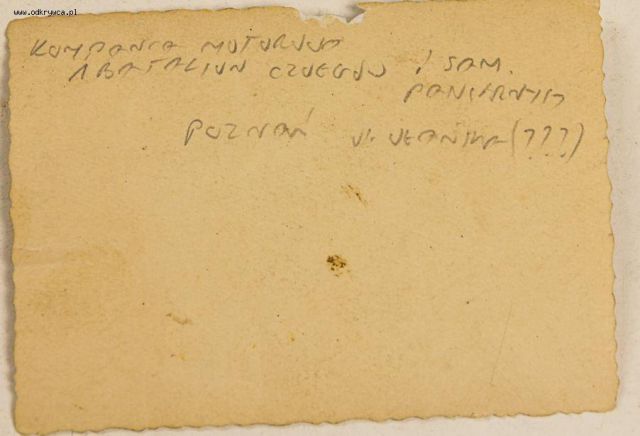 www.odkrywca.pl
KOMPANIA MOTOROWA
1 BATALION CZOŁGÓW I SAM.
PANCERNYCH
POZNAŃ UL. UŁAŃSKA (???)